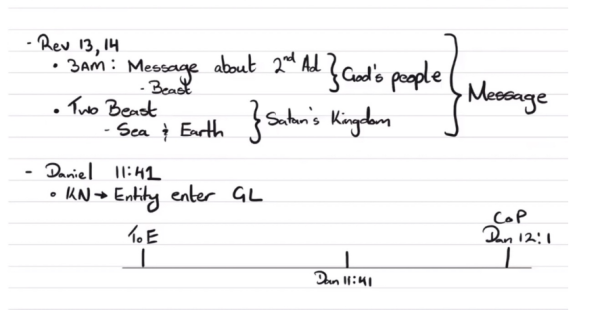 - Rev 13,14
• 3AM: Message about 2nd Ad } God's people
- Beast
} Message
• Two Beast
- Sea & Earth } Satan's Kingdom
- Daniel 11:41
• KN → Entity enter GL
ToE
CoP
Dan 12:1
Dan 11:41